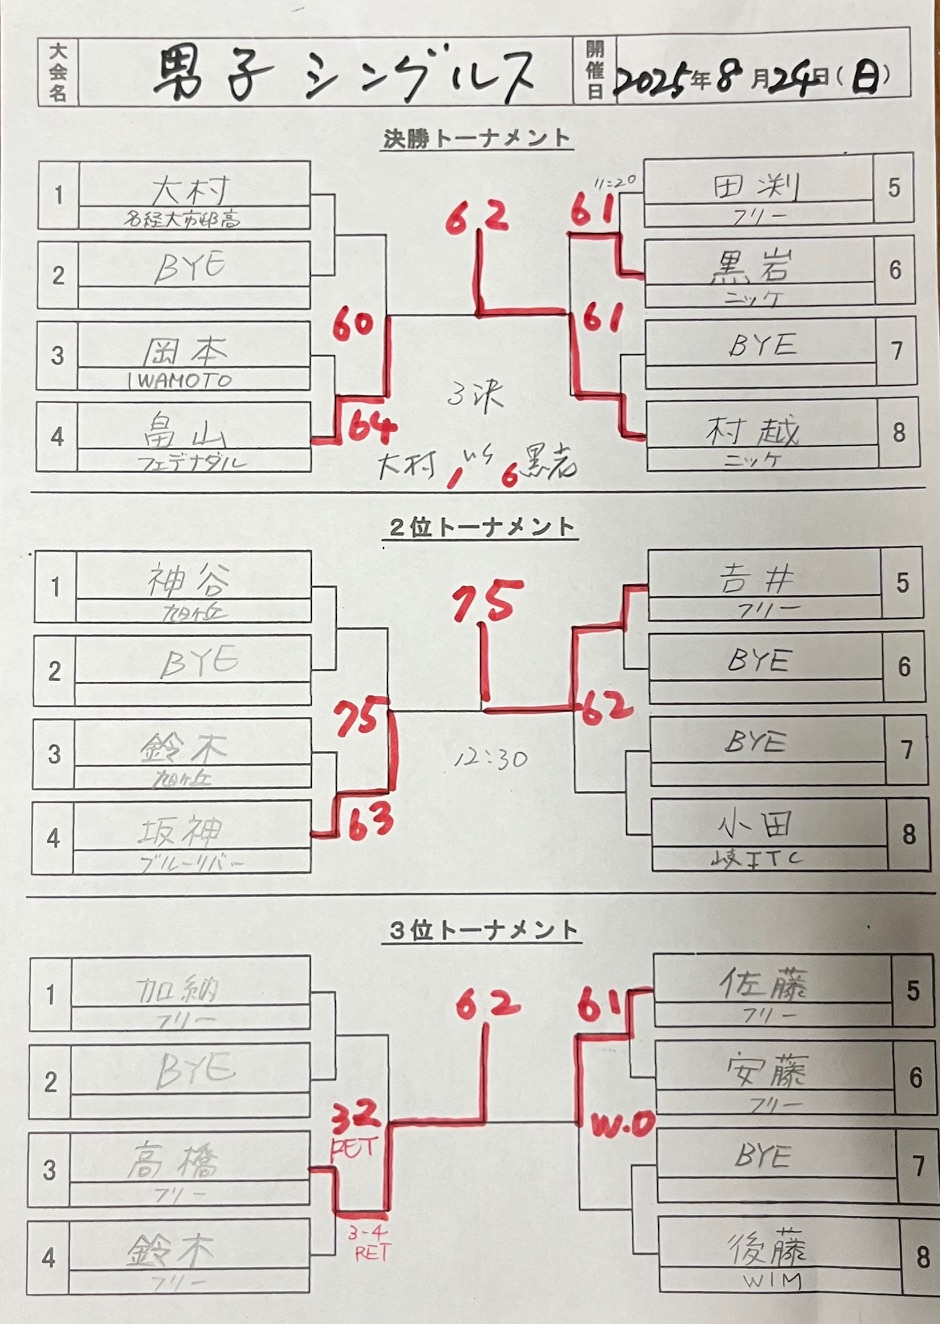 大会名 男子シングルス 開催日 2025年8月24日(日)
決勝トーナメント
1 大村
名経大市邨高
2 BYE
3 岡本
IWAMOTO
4 畠山
フェデナダル
60
64
62
3決
大村 vs 黒岩
1 6
11:20
61
61
田渕 5
フリー
黒岩 6
ニッケ
BYE 7
村越 8
ニッケ
2位トーナメント
1 神谷
旭ヶ丘
2 BYE
3 鈴木
旭ヶ丘
4 坂神
ブルーリバー
75
63
75
12:30
62
吉井 5
フリー
BYE 6
BYE 7
小田 8
岐阜ITC
3位トーナメント
1 加納
フリー
2 BYE
3 高橋
フリー
4 鈴木
フリー
32
RET
3-4
RET
62
61
W.O
佐藤 5
フリー
安藤 6
フリー
BYE 7
後藤 8
WIM